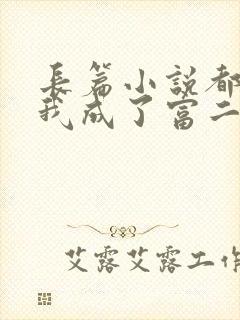 長篇小説都
我成了富二
艾露艾露工作